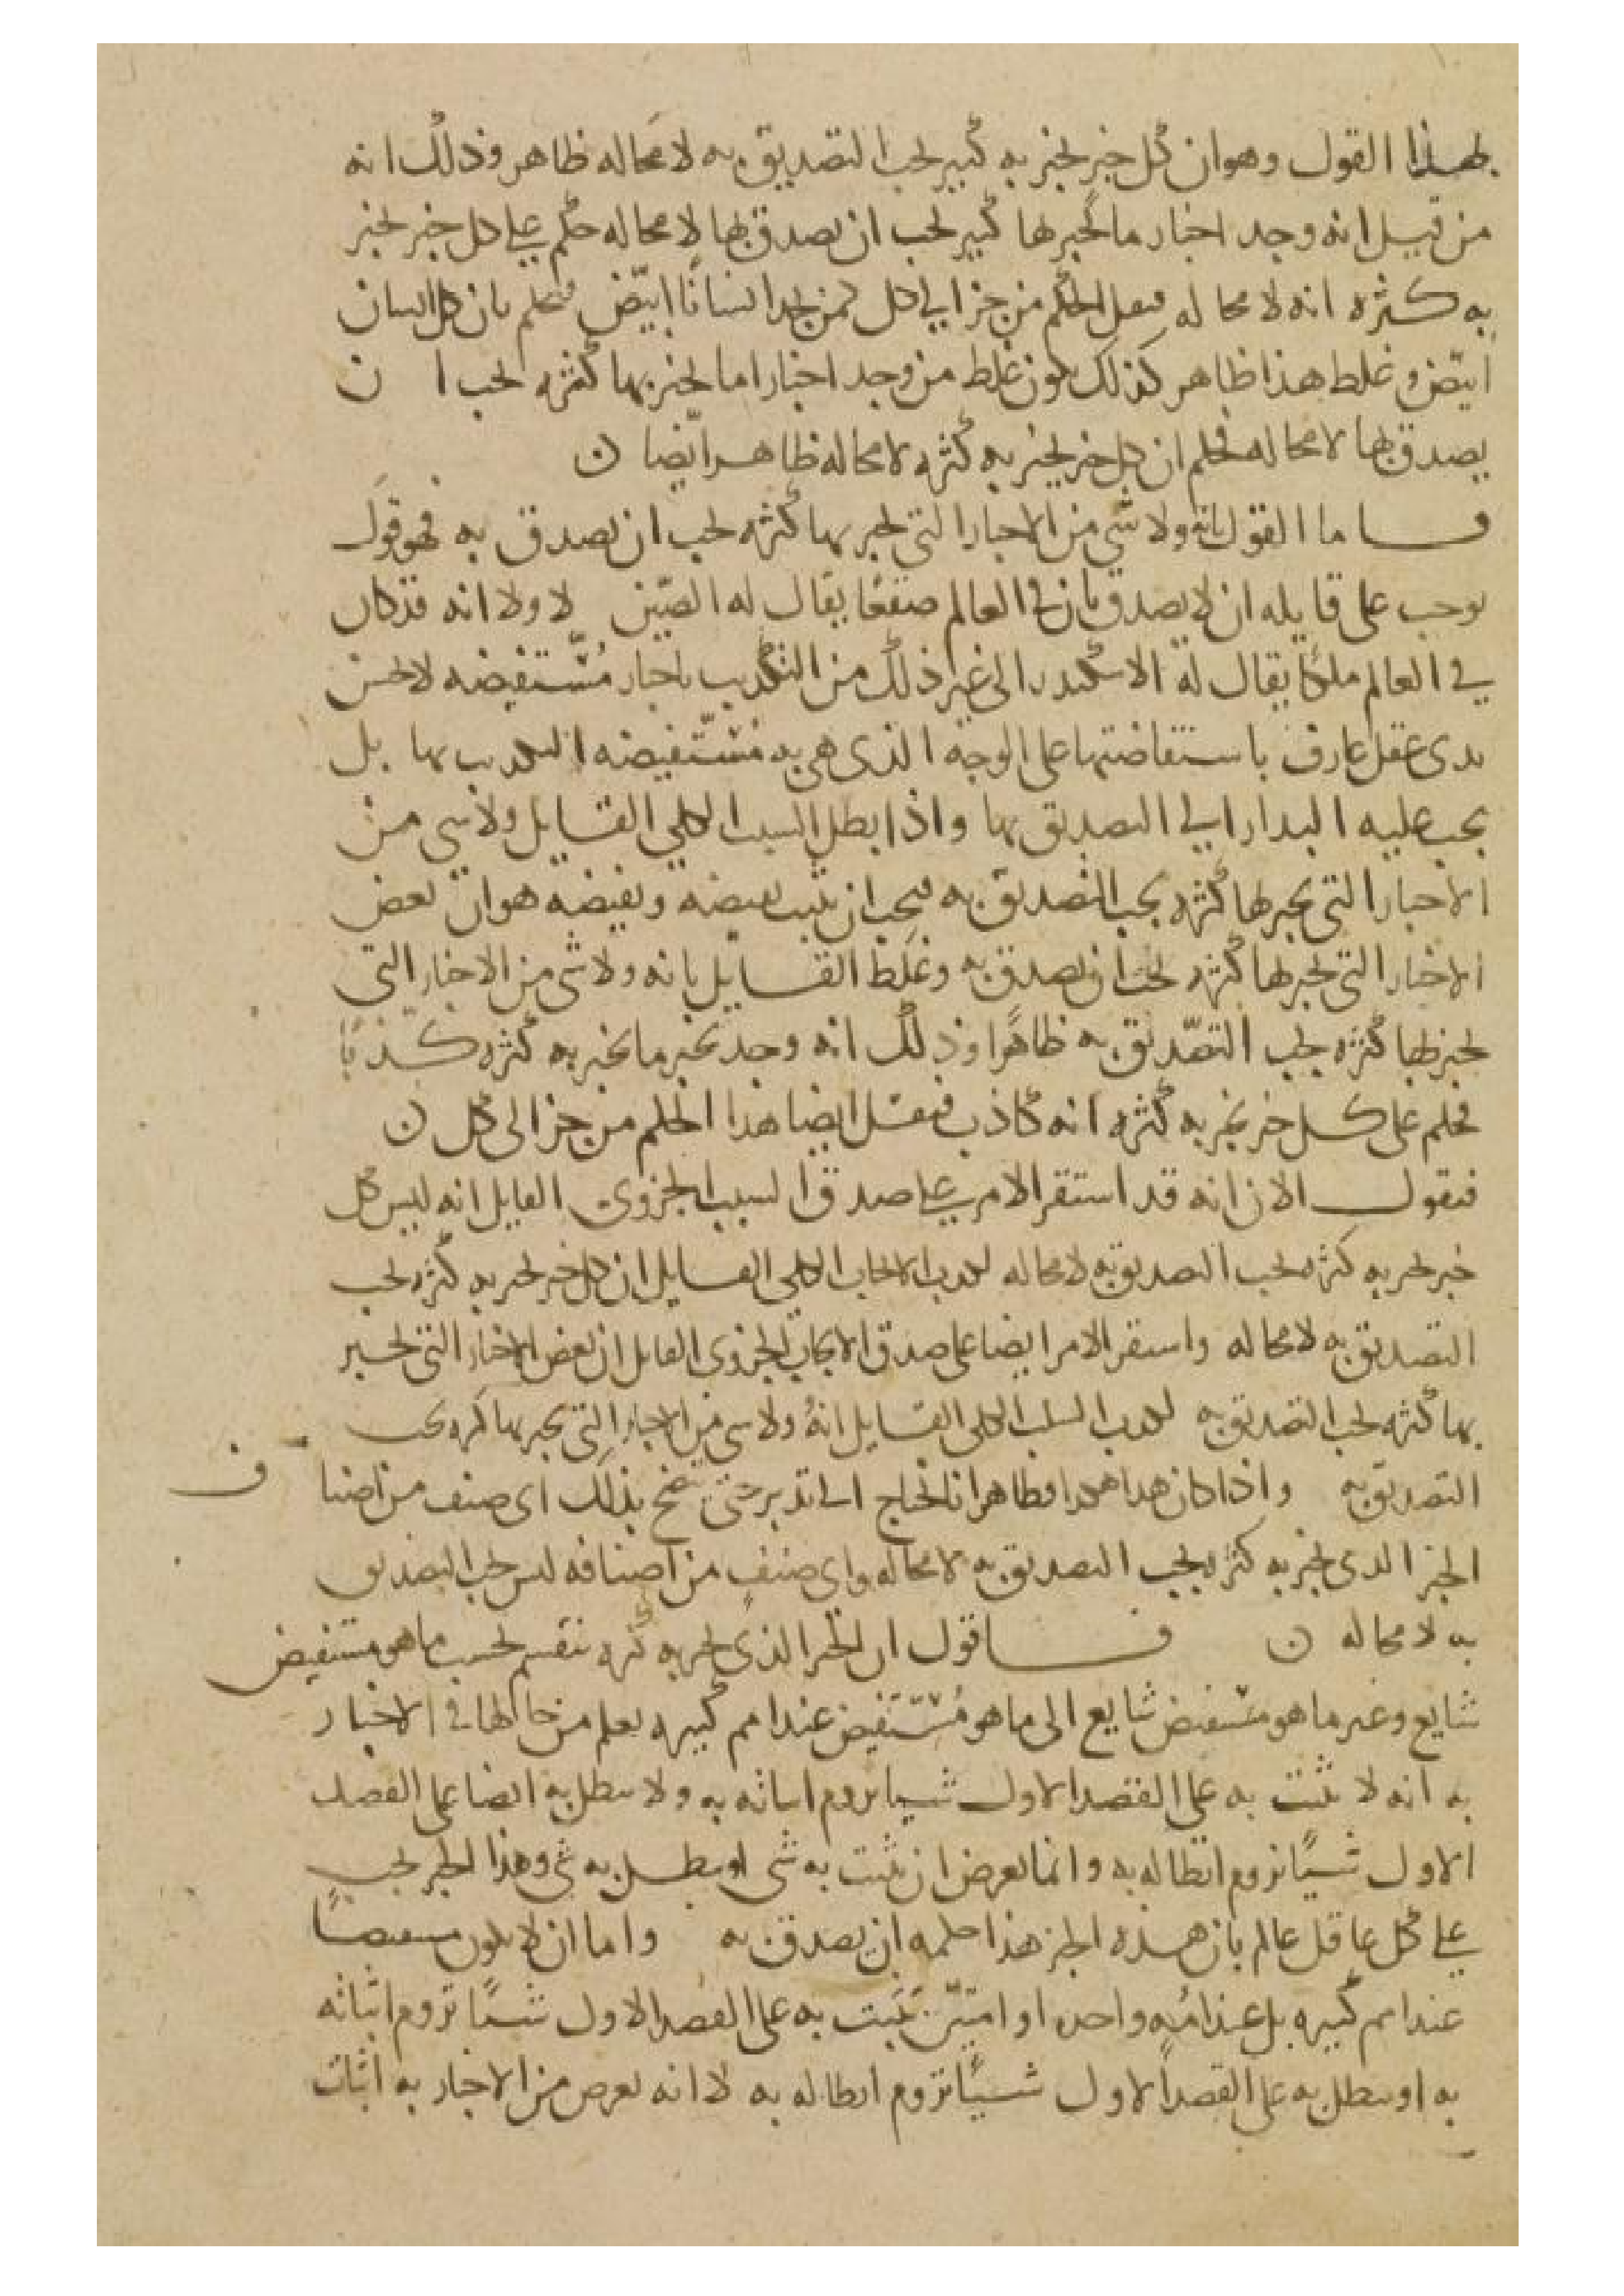 بهذا القول وهو ان كل خبر يخبر به كثير يجب التصديق به لا محاله ظاهر وذلك انه
من قبيل انه وجد اخبار ما يخبر بها كثير يجب ان يصدق بها لا محاله حكم على كل خبر يخبر
به كثره انه لا محاله فنقل الحكم من جز الى كل كمن يجد انسانًا ابيّض فيحكم بان كل انسان
ابيّض و غلط هذا ظاهر كذلك يكون غلط من وجد اخبارا ما يخبر بها كثره يجب ا ن
يصدق بها لا محاله فحكم ان كل خبر يخبر به كثره لا محاله ظاهر ايضا ن
فاما القول بانه ولا شي من الاخبار التي يخبر بها كثره يجب ان يصدق به فهو قول
يوجب على قايله ان لا يصدق بان في العالم صقعًا يقال له الصين لا ولا انه قد كان
في العالم ملكًا يقال له الاسكندر الى غير ذلك من التكذيب باخبار مُستفيضه لا يحسن
بذى عقل عارف باستفاضتها على الوجه الذى هى به مستفيضه التكذيب بها بل
يجب عليه البدار الى التصديق بها واذا بطل السلب الكلي القايل ولا شي من
الاخبار التي يخبر بها كثره يجب التصديق به فيجب ان يثبت نقيضه ونقيضه هو ان بعض
الاخبار التي يخبر بها كثره يجب ان يصدق به وغلط القايل بانه ولا شي من الاخبار التي
يخبر بها كثره يجب التصديق به ظاهرًا وذلك انه وجد بخبر ما يخبر به كثره كذبًا
فحكم على كل خبر يخبر به كثره انه كاذب فنقل ايضا هذا الحكم من جز الى كل ن
فنقول الان انه قد استقر الامر على صدق السلب الجزوى القايل انه ليس كل
خبر يخبر به كثره يجب التصديق به لا محاله لكذب الايجاب الكلي القايل ان كل خبر يخبر به كثره يجب
التصديق به لا محاله واستقر الامر ايضا على صدق الايجاب الجزوى القايل ان بعض الاخبار التي يخبر
بها كثره يجب التصديق به لكذب السلب الكلي القايل انهُ ولا شي من الاخبار التي يخبر بها كثره يجب
التصديق به واذا كان هذا هكذا فظاهر انا نحتاج الى تدبر حتى يتضح بذلك اى صنف من اصناف
الخبر الذى يخبر به كثره يجب التصديق به لا محاله واى صنف من اصنافه ليس يجب التصديق
به لا محاله ن فاقول ان الخبر الذي يخبر به كثره ينقسم بحسب ما هو مستفيض
شايع وغير ما هو مستفيض شايع الى ما هو مُستفيض عند امم كثيره يعلم من حالها في الاخبار
به انه لا تثبت به على القصد الاول شيا تروم اثباته به ولا تبطل به ايضا على القصد
الاول شيًا تروم ابطاله به وانما يعرض ان يثبت به شى او يبطل به شى وهذا الخبر يجب
على كل عاقل عالم بان هذه الخبر هذا حكمه ان يصدق به واما ان لا يكون مستفيضًا
عند امم كثيره بل عند امُه واحده او امتيّن تثبت به على القصد الاول شيًا تروم اثباته
به او تبطل به على القصد الاول شيًا تروم ابطاله به لا انه يعرض من الاخبار به اثبات